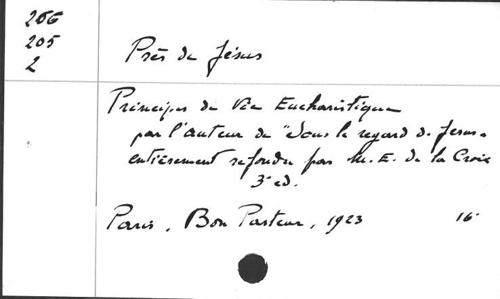 266
205
2
Près de Jésus
Principes de Vie Eucharistique
par l'auteur de "Dans le regard de Jesus"
entièrement refondu par M. E. de la Croix
3e ed.
Paris, Bon Pasteur, 1923 16°